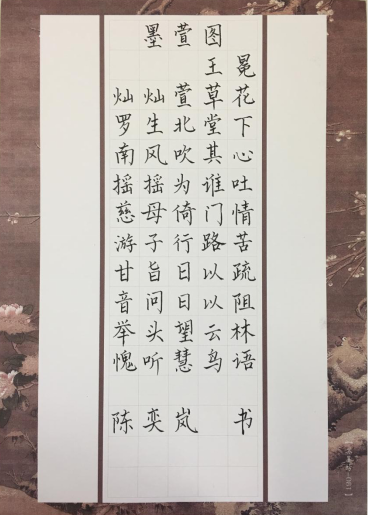 墨萱图
王冕
灿灿萱草花
罗生北堂下
南风吹其心
摇摇为谁吐
慈母倚门情
游子行路苦
甘旨日以疏
音问日以阻
举头望云林
愧听慧鸟语
陈奕岚书